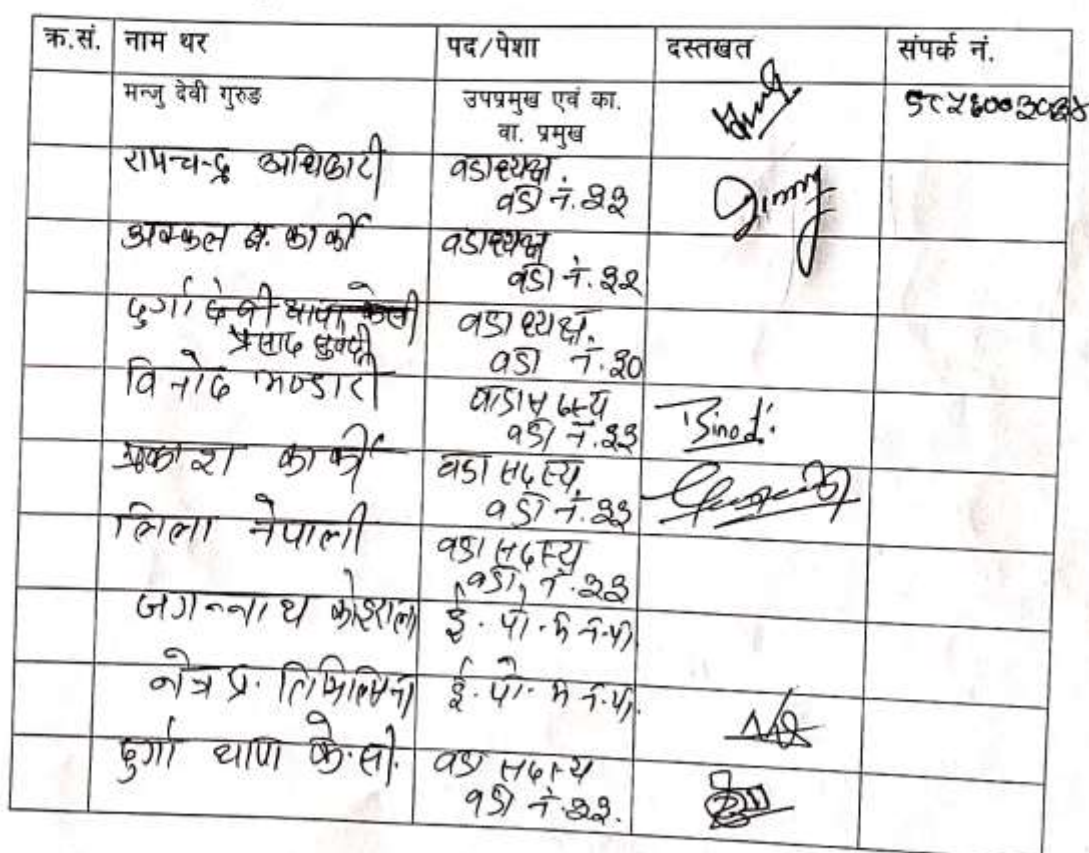 क्र.सं. नाम थर पद/पेशा दस्तखत संपर्क नं.
मन्जु देवी गुरुङ उपप्रमुख एवं का.
वा. प्रमुख
रामचन्द्र अधिकारी वडाध्यक्ष.
वडा नं. ३३
कार्की वडाध्यक्ष
वडा नं. ३२
दुर्गा देवी थापा
प्रसाद सुवेदी वडाध्यक्ष.
वडा नं. ३०
विनोद भण्डारी वडा सदस्य
वडा नं. ३३ Binod
प्रकाश कार्की वडा सदस्य
वडा नं. ३३
लिला नेपाली वडा सदस्य
वडा नं. ३३
जगन्नाथ कोइराला ई. पो. म न.पा.
नेत्र प्र. तिमिल्सिना ई. पो. म न.पा.
दुर्गा थापा के.सी. वडा सदस्य
वडा नं. ३३.